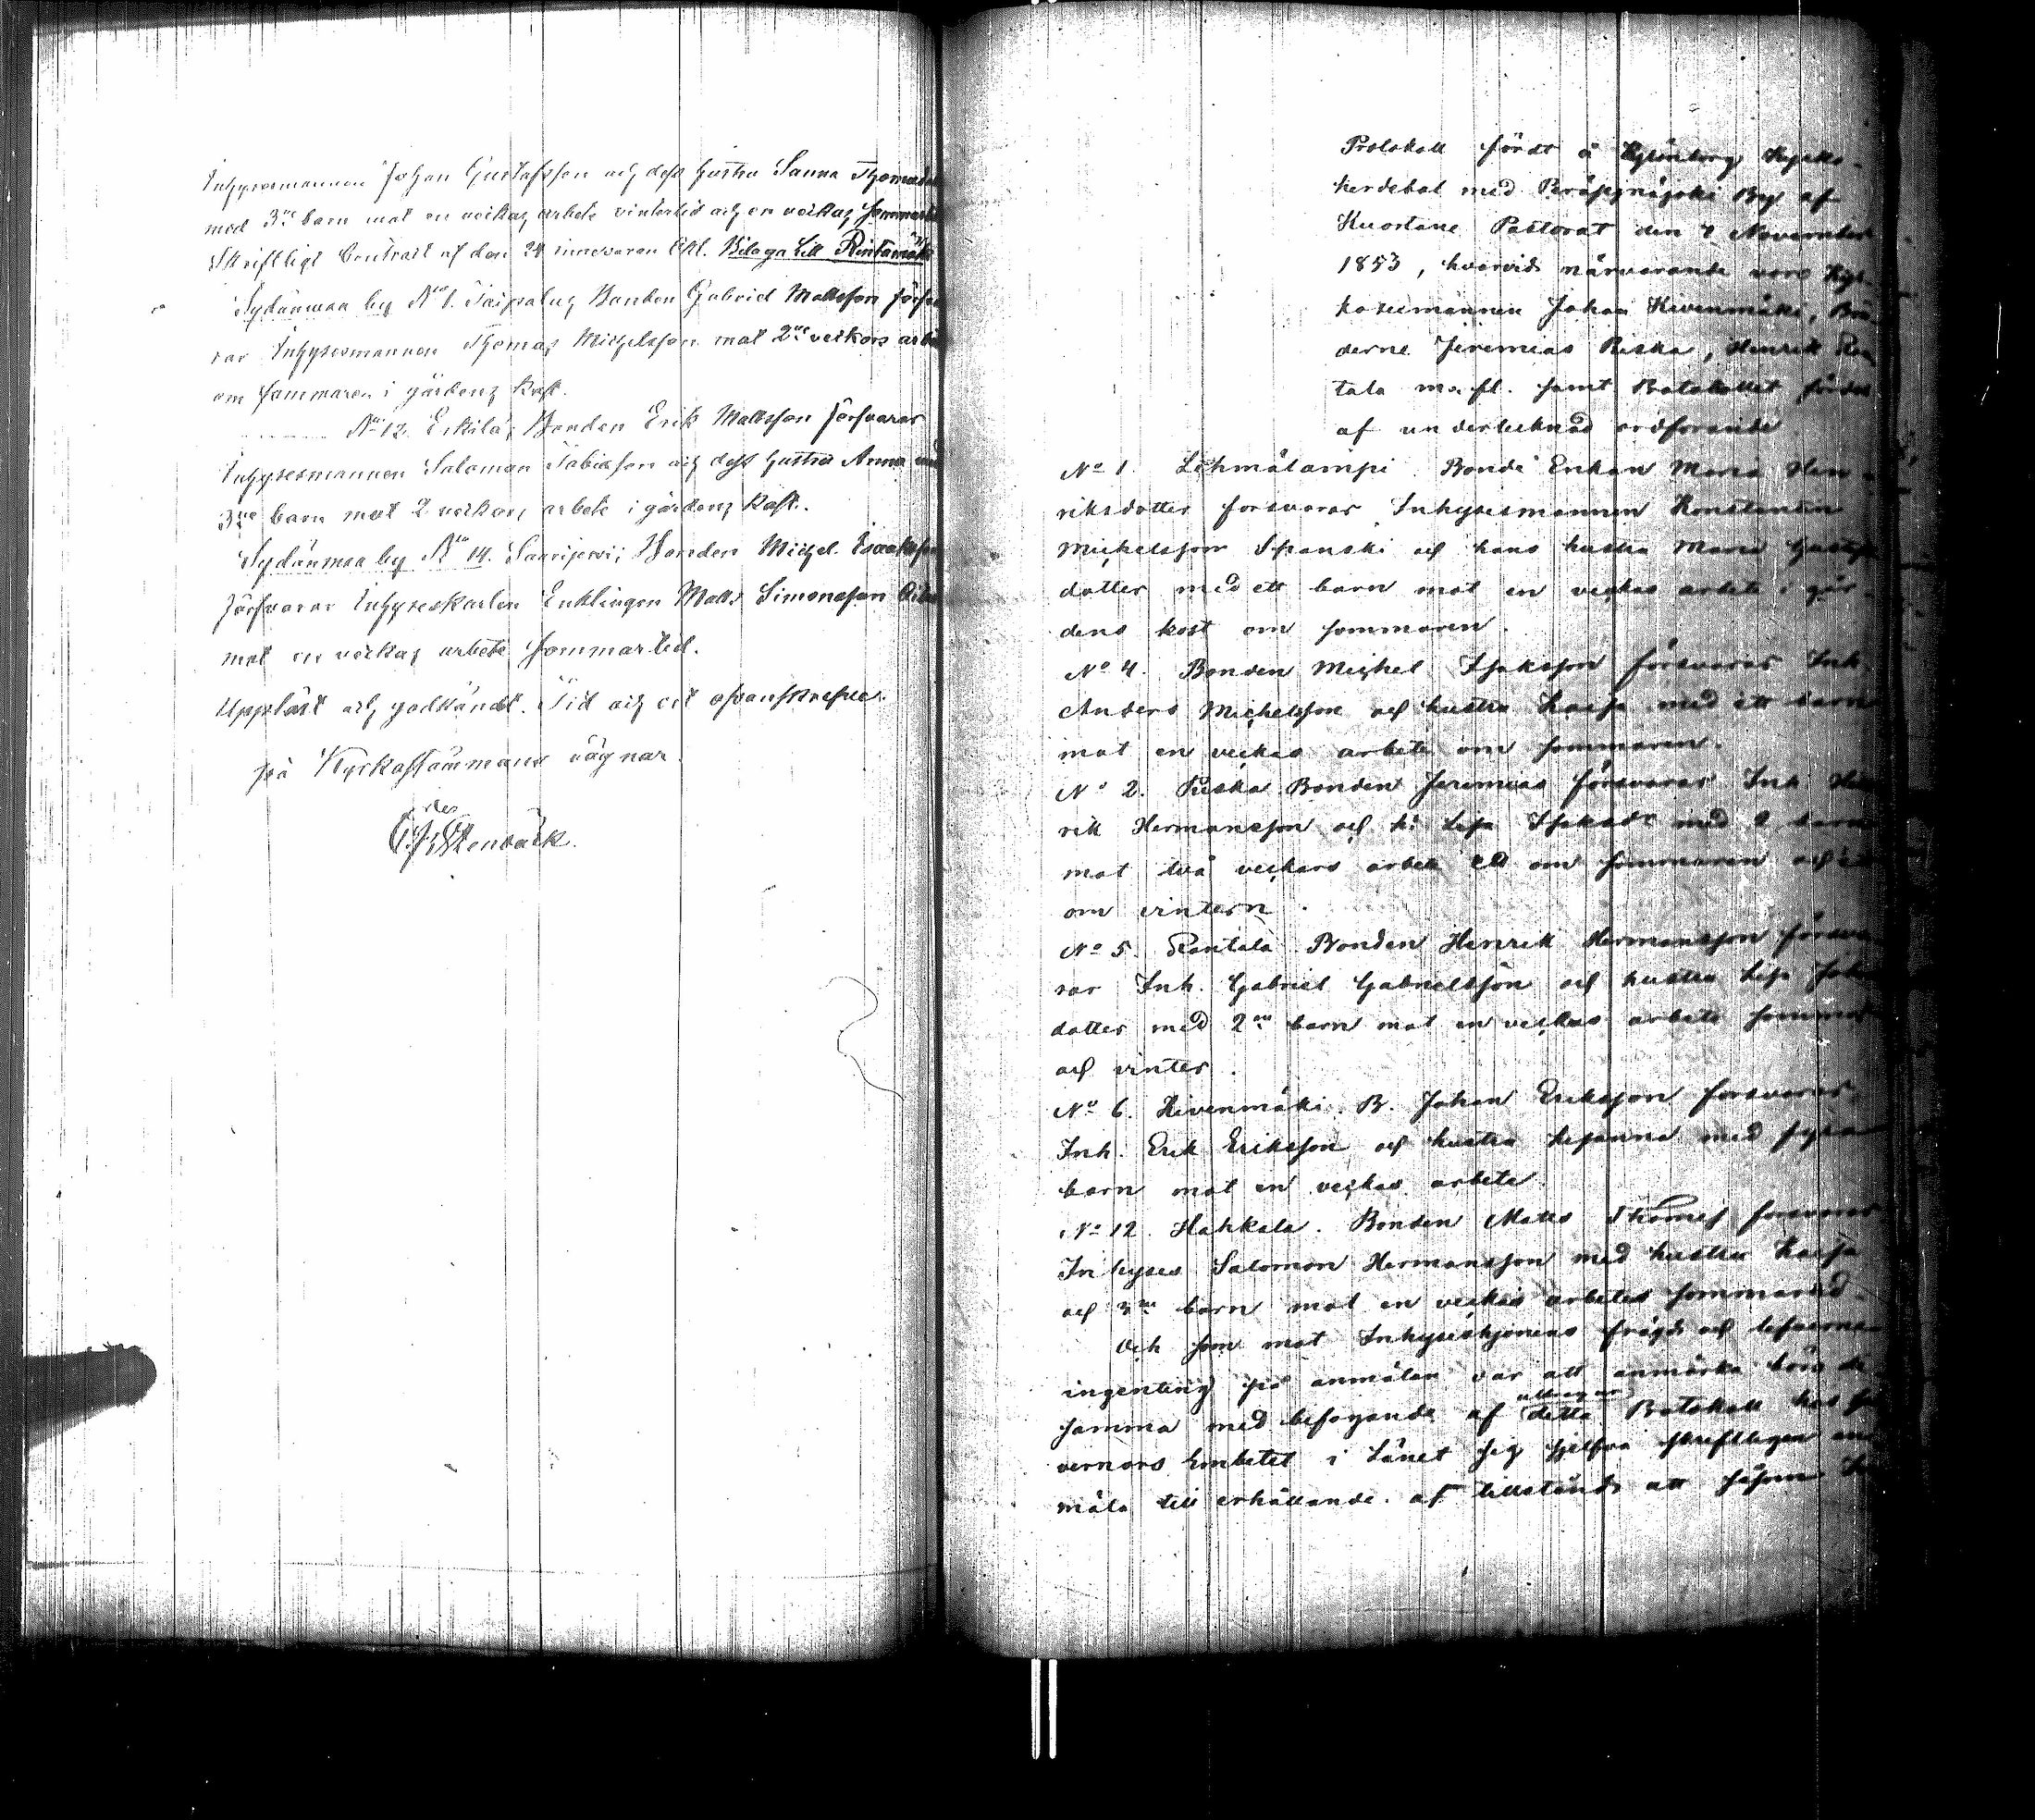 Inhysesmannen Johan Gustafsson och dess hustru Sanna
med 3ne barn mot en veckas arbete vintertid och en veckas
Skriftligt Contract af den 24 innevaran Okt. Bilaga till Rintamäki
Sydänmaa by No 1. Taipalus Bonden Gabriel Mattsson
rar Inhysesmannen Thomas Michelsson mot 2ne veckors
om sommaren i gårdens kost.
No 12. Erkilä; Bonden Erik Mattsson försvarar
Inhysesmannen Saloman Tobiasson och dess hustru Anna med
3ne barn mot 2 veckors arbete i gårdens kost.
Sydänmaa by No 14. Saarijervi; Bonden Michel Isaaksson
försvarar Inhyseskarlen Enklingen Matts Simonsson
mot en veckas arbete sommartid.
Uppläst och godkändt. Tid och ort ofvanskrefne.
på Kyrkostämmans vägnar.
Stenbäck.
Protokoll fördt å
med By af
Kuortane Pastorat den November
1853, hvarvid närvarande voro
männen Johan Kivenmäki, Brö-
derne Jeremias Riska, Henrik Ran
tala m. fl. samt Protokollet fördes
af undertecknad ordförande
No 1. Lehmälampi. Bonde Enkan Maria Hen-
riksdotter försvarar Inhysesmannen Konstantin
Michelsson Spanski och hans hustru Maria
dotter med ett barn mot en veckas arbete i går-
dens kost om sommaren.
No 4. Bonden Michel Isaksson försvarar Inh.
Anders Michelsson och hustru Kaisa med ett barn
mot en veckas arbete om sommaren.
No 2. Riska Bonden Jeremias försvarar Inh. Hen
rik Hermansson och h: Lisa Isaksdr med 2 barn
mot två veckors arbete en om sommaren och en
om vintern.
No 5. Rantala Bonden Henrik Hermansson försva
rar Inh. Gabriel Gabrielsson och hustru Lisa Johans
dotter med 2ne barn mot en veckas arbete sommar
och vinter.
No 6. Kivenmäki. B. Johan Eriksson försvarar
Inh. Erik Eriksson och hustru Lisanna med fyra
barn mot en veckas arbete.
No 12. Hahkala. Bonden Matts Thomes försvarar
Inhyses Salomon Hermansson med hustru Kaisa
och 3ne barn mot en veckas arbete sommartid.
Och som mot Inhyseshjonens frägd och lefverne
ingenting på anmälan var att anmärka böra de
samma med bifogande af utdrag ur detta Protokoll hos
vernors Embetet i Länet sig sjelfva skriftligen an
mäla till erhållande af tillstånd att såsom